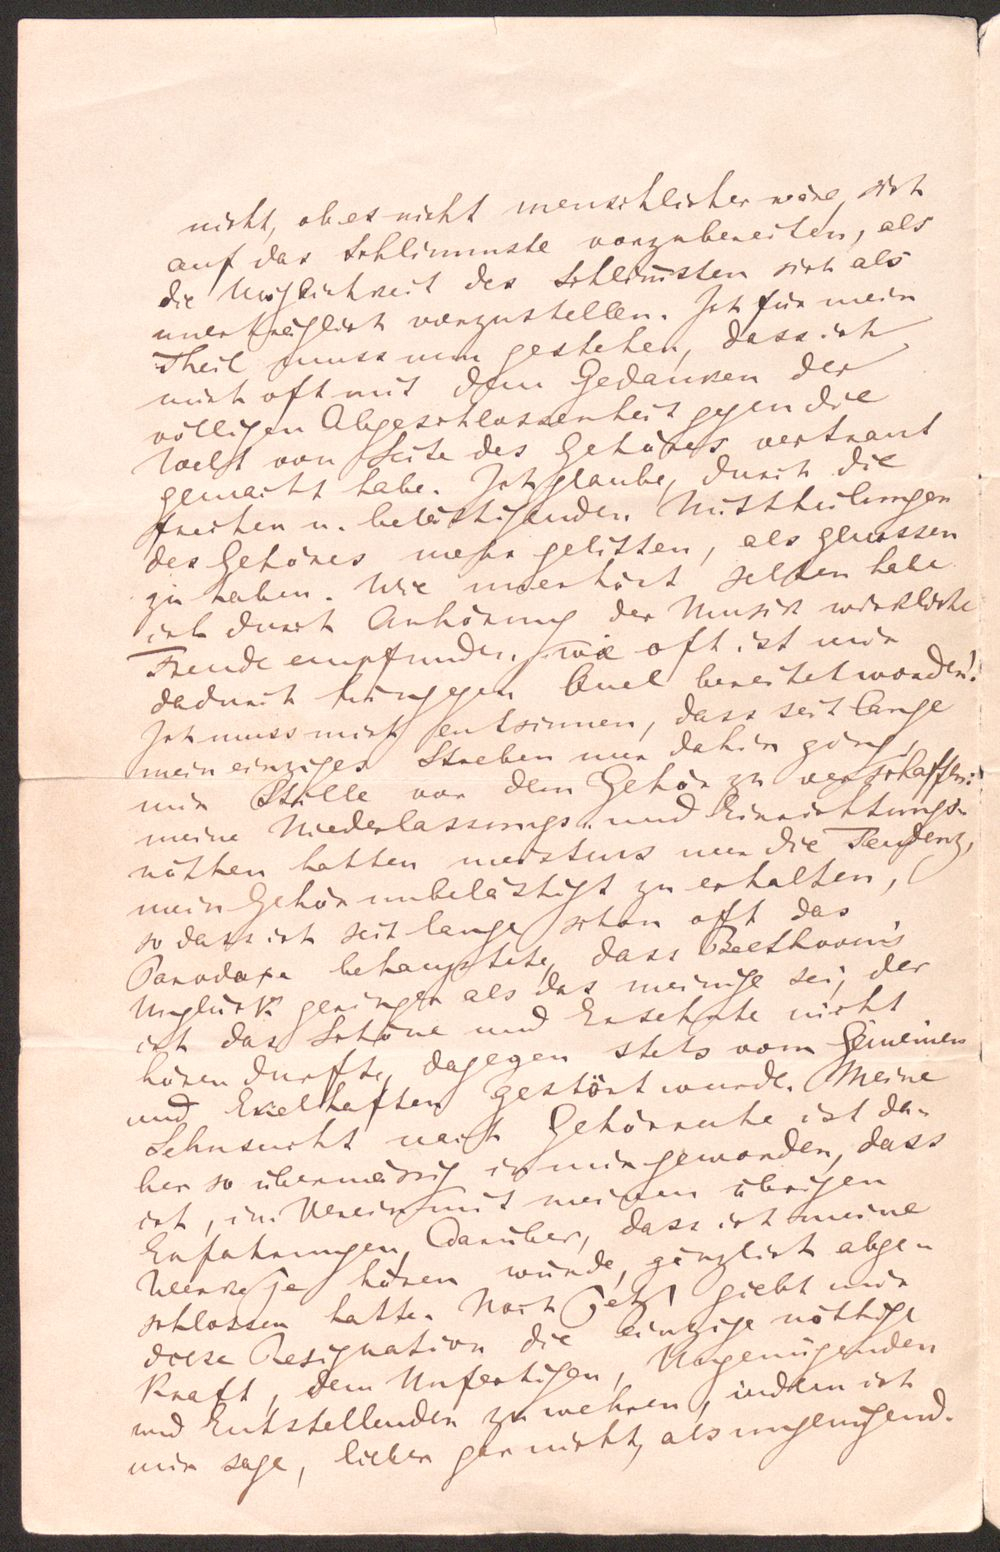 nicht, ob es nicht menschlicher wäre, sich
auf das Schlimmste vorzubereiten, als
die Möglichkeit des Schlim̅sten sich als
unerträglich vorzustellen. Ich für mein
Theil muss nun gestehen, dass ich
mich oft mit dem Gedanken der
völligen Abgeschlossenheit gegen die
Welt von Seite des Gehöres vertraut
gemacht habe. Ich glaube, durch die
frechen u. belästigenden Mittheilungen
des Gehöres mehr gelitten, als genossen
zu haben. Wie unerhört selten habe
ich durch Anhörung der Musik wirkliche
Freude empfunden, wie oft ist mir
dadurch hingegen Qual bereitet worden!
Ich muss mich entsinnen, dass seit lange
mein einziges Streben nur dahin ging,
mir Stille vor dem Gehör zu verschaffen:
meine Niederlassungs- und Einrichtungs-
nöthen hatten meistens nur die Tendenz,
mein Gehör unbelästigt zu erhalten,
so dass ich seit lange schon oft das
Paradoxe behauptete, dass Beethoven's
Unglück geringer als das meinige sei, der
ich das Schöne und Ersehnte nicht
hören durfte, dagegen stets vom Gemeinen
und Ekelhaften gestört wurde. Meine
Sehnsucht nach Gehörruhe ist da-
her so übermässig in mir geworden, dass
ich, im Verein mit meinen übrigen
Erfahrungen darüber, dass ich meine
Werke je hören würde, gänzlich abge-
schlossen hatte. Noch jetzt giebt mir
diese Resignation die einzige nöthige
Kraft, dem Unfertigen, Ungenügenden
und Entstellenden zu wehren, indem ich
mir sage, lieber gar nicht, als ungenügend.